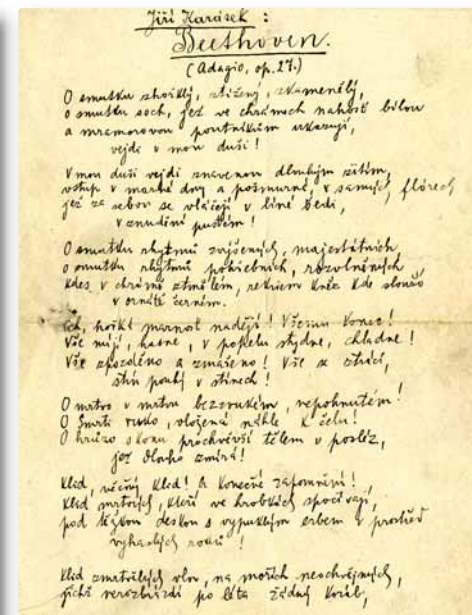 Jiří Karásek :
Beethoven.
(Adagio, op. 27.)
O smutku zhořklý, ztížený, zkamenělý,
o smutku soch, jež ve chrámech nahost bílou
a mramorovou poutníkům ukazují,
vejdi v mou duši !
V mou duši vejdi znavenou dlouhým žitím,
vstup v marné dny a pošmurné, v samých flórech
jež za sebou se vláčejí v líné šedi,
v znudění pustém !
O smutku rhytmů zvýšených, majestátních
o smutku rhytmů pohřebních, rozvolněných
kdes v chrámě ztmělém, rekviem kněz kde slouží
v ornátě černém.
Ach, hořká marnost nadějí ! Všemu konec !
Vše míjí, hasne, v popelu stydne, chladne !
Vše zpozděno a zmařeno ! Vše se ztrácí,
stín pouhý v stínech !
O mrtvo v mrtvu bezzvukém, nepohnutém !
O Smrti ruko, vložená náhle k čelu !
O hrůzo skonu prochvěvší tělem v posléz,
jež dlouho zmírá !
Klid, věčný klid ! A konečné zapomnění !
Klid mrtvých, kteří ve hrobkách spočívají,
pod těžkou deskou s vypuklým erbem v prostřed
vyhaslých rodů !
Klid zmrtvělých vln, na mořích neschvějných,
jichž nerozbrázdí po léta žádný koráb,